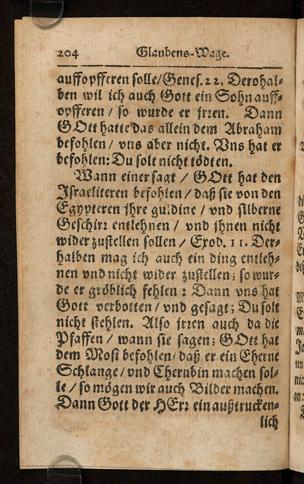 204 Glaubens-Wage.
auffopfferen solle/Genes. 22. Derohal-
ben wil ich auch Gott ein Sohn auff-
opfferen / so wurde er jrren. Dann
GOtt hatte das allein dem Abraham
befohlen / uns aber nicht. Vns hat er
befohlen: Du solt nicht tödten.
Wann einer sagt / GOtt hat den
Israeliteren befohlen / daß sie von den
Egypteren ihre guldine / vnd silberne
Geschirr entlehnen / vnd ihnen nicht
wider zustellen sollen / Exod. 11. Der-
halben mag ich auch ein ding entleh-
nen vnd nicht wider zustellen; so wur-
de er gröblich fehlen: Dann vns hat
Gott verbotten / vnd gesagt; Du solt
nicht stehlen. Also jrren auch da die
Pfaffen / wann sie sagen; GOtt hat
dem Mosi befohlen / daß er ein Eherne
Schlange / vnd Cherubin machen sol-
le / so mögen wir auch Bilder machen.
Dann Gott der HErr ein außtrucken-
lich